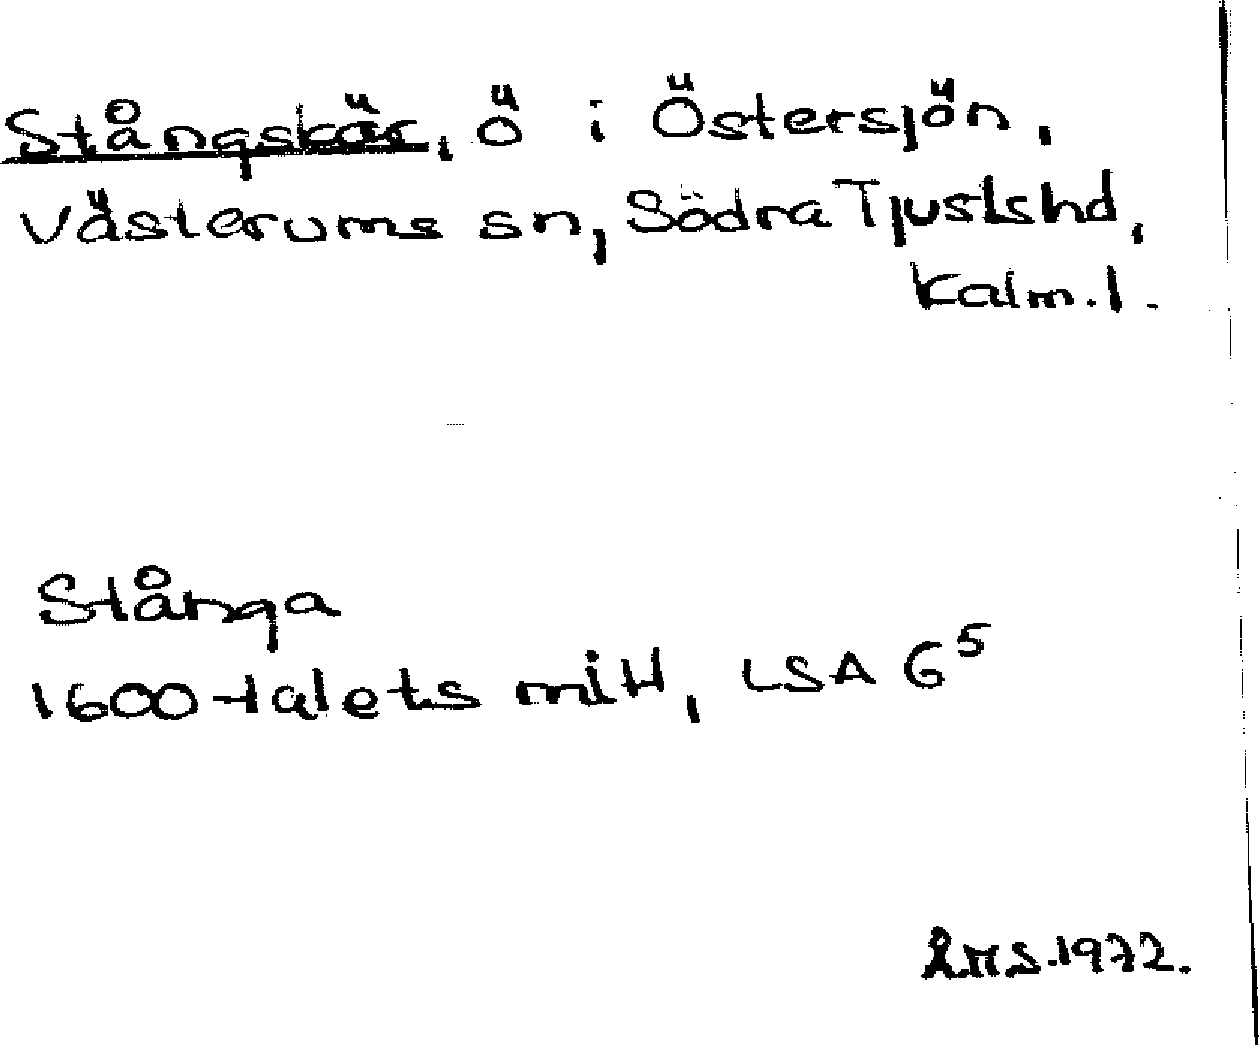 Stångskär, ö i Östersjön,
Västerums sn, Södra Tjusts hd,
Kalm. l.
Stånga
1600-talets mitt, LSA G⁵
Å.H.S. 1972.